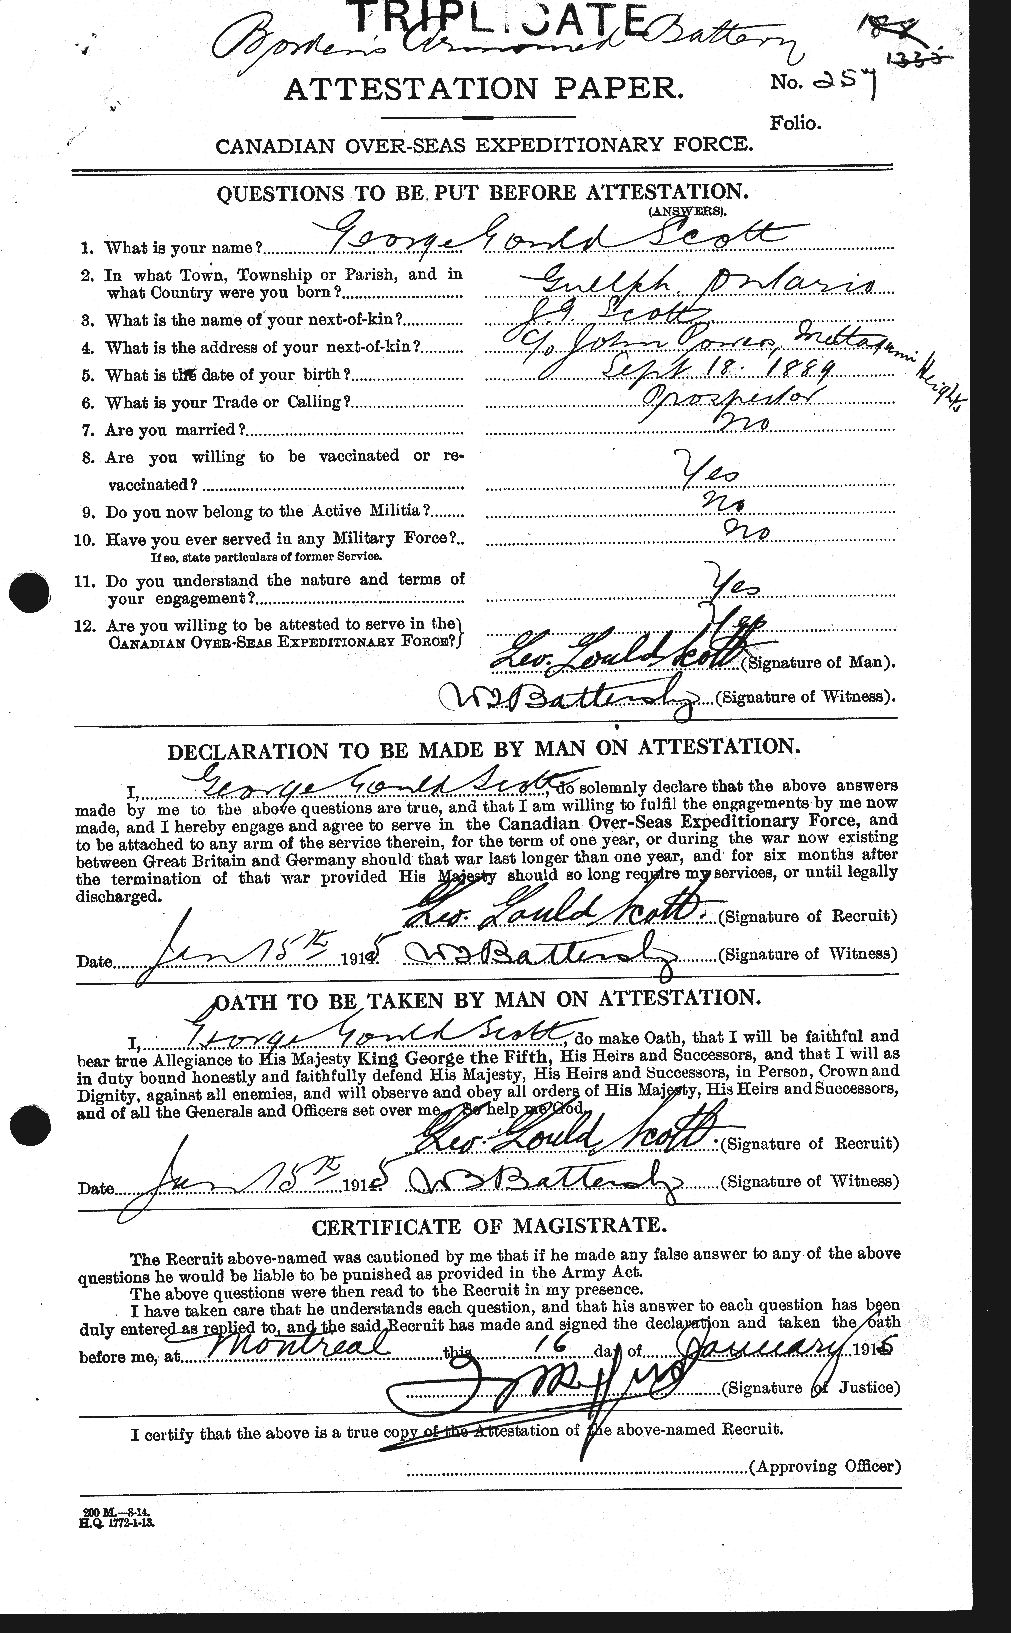 TRIPLICATE
Borden's Armoured Battery
188
1333
ATTESTATION PAPER.
No. 257
Folio.
CANADIAN OVER-SEAS EXPEDITIONARY FORCE.
QUESTIONS TO BE PUT BEFORE ATTESTATION.
(ANSWERS).
1. What is your name? George Gould Scott
2. In what Town, Township or Parish, and in
what Country were you born? Guelph. Ontario
3. What is the name of your next-of-kin? Scott
4. What is the address of your next-of-kin? c/o John Power, Mattagami Heights
5. What is the date of your birth? Sept 18. 1889
6. What is your Trade or Calling? Prospector
7. Are you married? no
8. Are you willing to be vaccinated or re-
vaccinated? Yes
9. Do you now belong to the Active Militia? No
10. Have you ever served in any Military Force? No
If so, state particulars of former Service.
11. Do you understand the nature and terms of
your engagement? Yes
12. Are you willing to be attested to serve in the
CANADIAN OVER-SEAS EXPEDITIONARY FORCE? Yes
Geo. Gould Scott (Signature of Man).
Battersby (Signature of Witness).
DECLARATION TO BE MADE BY MAN ON ATTESTATION.
I, George Gould Scott, do solemnly declare that the above answers
made by me to the above questions are true, and that I am willing to fulfil the engagements by me now
made, and I hereby engage and agree to serve in the Canadian Over-Seas Expeditionary Force, and
to be attached to any arm of the service therein, for the term of one year, or during the war now existing
between Great Britain and Germany should that war last longer than one year, and for six months after
the termination of that war provided His Majesty should so long require my services, or until legally
discharged.
Geo. Gould Scott. (Signature of Recruit)
Date Jan 15th 1915 Battersby (Signature of Witness)
OATH TO BE TAKEN BY MAN ON ATTESTATION.
I, George Gould Scott, do make Oath, that I will be faithful and
bear true Allegiance to His Majesty King George the Fifth, His Heirs and Successors, and that I will as
in duty bound honestly and faithfully defend His Majesty, His Heirs and Successors, in Person, Crown and
Dignity, against all enemies, and will observe and obey all orders of His Majesty, His Heirs and Successors,
and of all the Generals and Officers set over me. So help me God.
Geo. Gould Scott. (Signature of Recruit)
Date Jan 15th 1915 Battersby (Signature of Witness)
CERTIFICATE OF MAGISTRATE.
The Recruit above-named was cautioned by me that if he made any false answer to any of the above
questions he would be liable to be punished as provided in the Army Act.
The above questions were then read to the Recruit in my presence.
I have taken care that he understands each question, and that his answer to each question has been
duly entered as replied to, and the said Recruit has made and signed the declaration and taken the oath
before me, at Montreal this 16 day of January 1915
(Signature of Justice)
I certify that the above is a true copy of the Attestation of the above-named Recruit.
(Approving Officer)
200 M.—8-14.
H.Q. 1772-1-13.